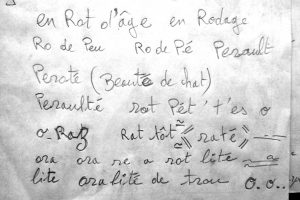 en Rat d'âge en Rodage
Ro de Peu Ro de Pé Perault
Perate (Beauté de chat)
Peraulté rot Pét't'es o
o. Raz Rat tôt raté
ora ora re a rot lite a
lite oralité de trou o.o..